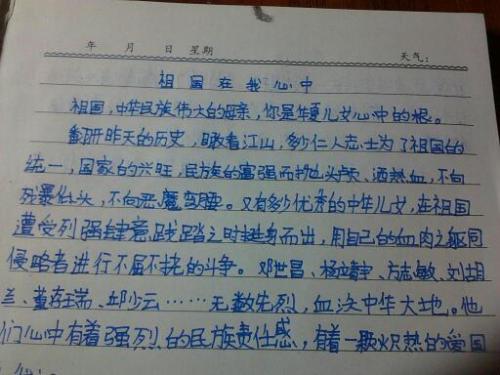 年 月 日 星期 天气:
祖国在我心中
祖国,中华民族伟大的母亲,你是华夏儿女心中的根。
翻开昨天的历史,瞰看江山,多少仁人志士为了祖国的
统一,国家的兴旺,民族的富强而抛头颅、洒热血,不向
残暴低头,不向恶魔弯腰。又有多少优秀的中华儿女,在祖国
遭受列强肆意践踏之时挺身而出,用自己的血肉之躯同
侵略者进行不屈不挠的斗争。邓世昌、杨靖宇、方志敏、刘胡
兰、董存瑞、邱少云……无数先烈,血洒中华大地。他
们心中有着强烈的民族责任感,有着一颗炽热的爱国